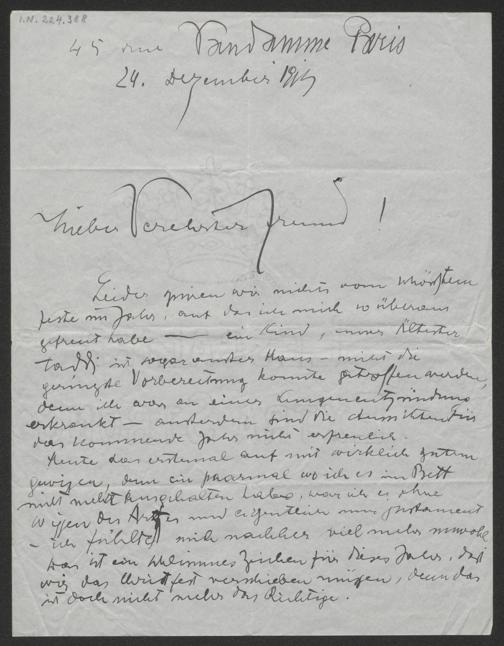 I.N. 224.388
45 rue Vandamme Paris
24. Dezember
Lieber Verehrter Freund!
Leider spüren wir nichts vom schönsten
Feste im Jahr, auf das ich mich so überaus
gefreut habe — ein Kind, unser Ältester
Taddi ist ausser Haus – nicht die
geringste Vorbereitung konnte getroffen werden,
denn ich war an einer Lungenentzündung
erkrankt – ausserdem sind die Aussichten für
das kommende Jahr nicht erfreulich.
Heute das erstemal auf mit wirklich gutem
Gewissen, denn ein paarmal wo ich es im Bett
nicht mehr ausgehalten habe, war ich es ohne
Wissen des Arztes und eigentlich
– ich fühlte mich nachher viel mehr unwohl
Das ist ein schlimmes Zeichen für dieses Jahr, daß
wir das Christfest verschieben müssen, denn das
ist doch nicht mehr das Richtige.